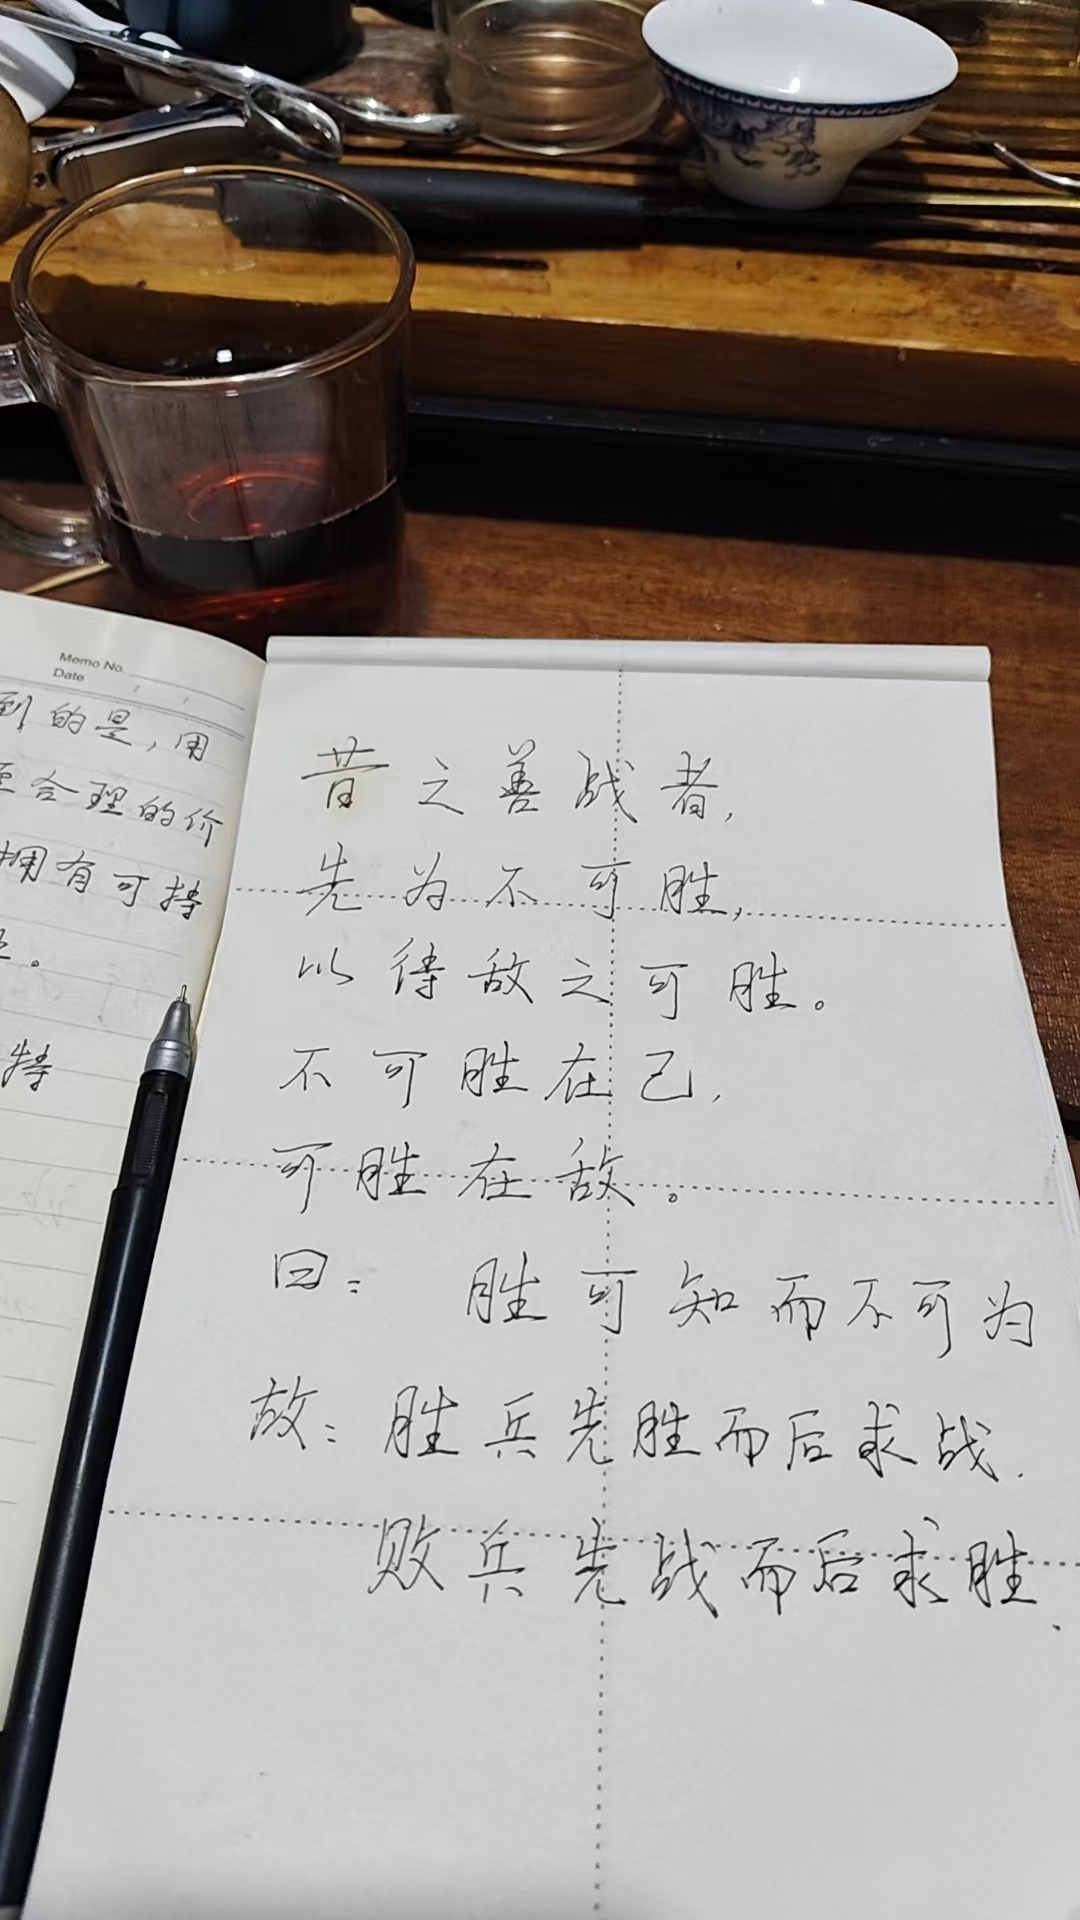 Memo No.
Date
到的是，用
合理的价
拥有可持
。
特
昔之善战者，
先为不可胜，
以待敌之可胜。
不可胜在己，
可胜在敌。
曰：胜可知而不可为
故：胜兵先胜而后求战．
败兵先战而后求胜．